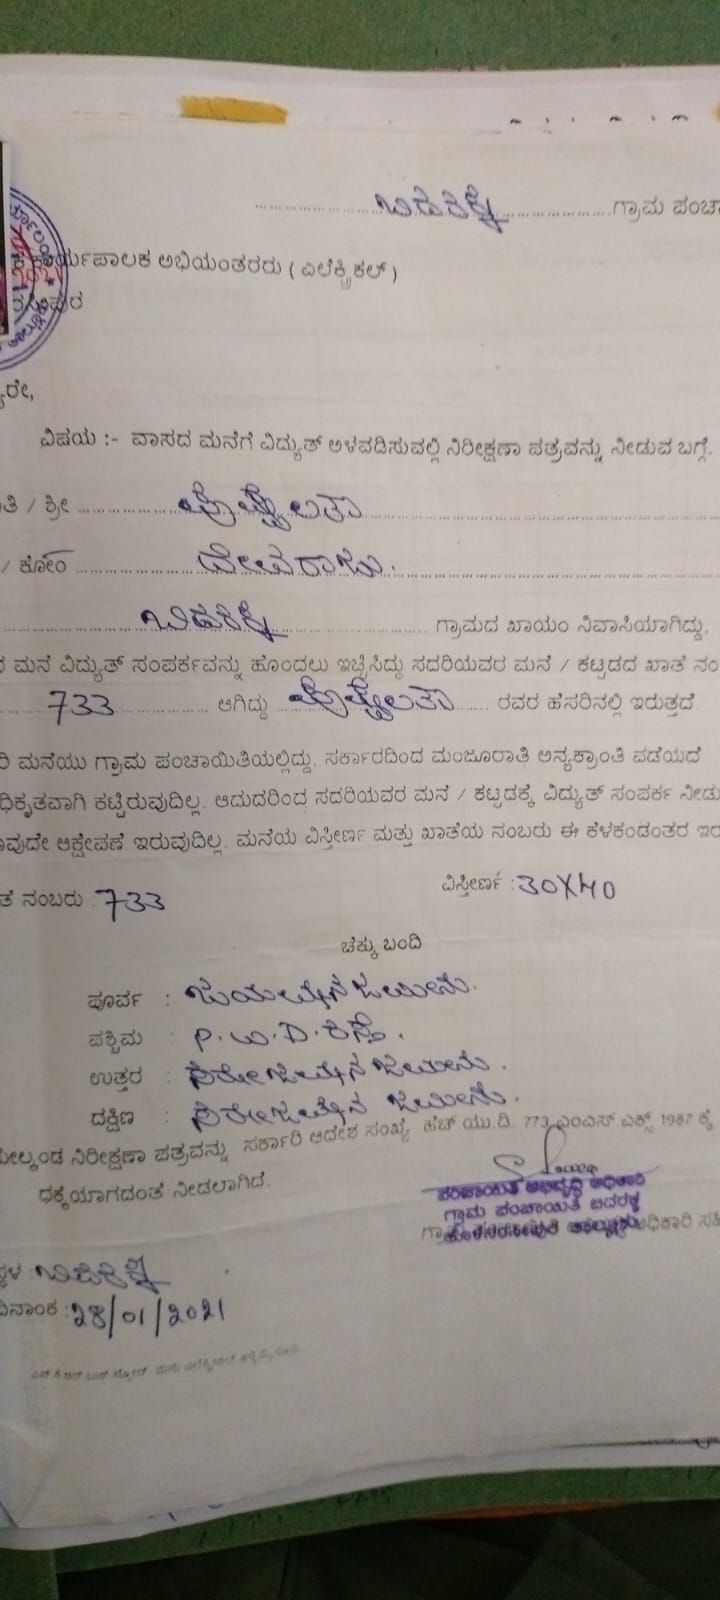 ಬಿದರಕ್ಕ ಗ್ರಾಮ ಪಂಚಾ
ಕಾರ್ಯಪಾಲಕ ಅಭಿಯಂತರರು ( ಎಲೆಕ್ಟ್ರಿಕಲ್ )
ರೇ,
ವಿಷಯ :- ವಾಸದ ಮನೆಗೆ ವಿದ್ಯುತ್ ಅಳವಡಿಸುವಲ್ಲಿ ನಿರೀಕ್ಷಣಾ ಪತ್ರವನ್ನು ನೀಡುವ ಬಗ್ಗೆ.
ತಿ / ಶ್ರೀ ಪುಷ್ಪಲತಾ
/ ಕೋಂ ದೇವರಾಜು.
ಬಿದರಕ್ಕ ಗ್ರಾಮದ ಖಾಯಂ ನಿವಾಸಿಯಾಗಿದ್ದು,
ರ ಮನೆ ವಿದ್ಯುತ್ ಸಂಪರ್ಕವನ್ನು ಹೊಂದಲು ಇಚ್ಚಿಸಿದ್ದು ಸದರಿಯವರ ಮನೆ / ಕಟ್ಟಡದ ಖಾತೆ ನಂ
733 ಆಗಿದ್ದು ಪುಷ್ಪಲತಾ ರವರ ಹೆಸರಿನಲ್ಲಿ ಇರುತ್ತದೆ
ರಿ ಮನೆಯು ಗ್ರಾಮ ಪಂಚಾಯಿತಿಯಲ್ಲಿದ್ದು, ಸರ್ಕಾರದಿಂದ ಮಂಜೂರಾತಿ ಅನ್ಯಕ್ರಾಂತಿ ಪಡೆಯದೆ
ಧಿಕೃತವಾಗಿ ಕಟ್ಟಿರುವುದಿಲ್ಲ. ಆದುದರಿಂದ ಸದರಿಯವರ ಮನೆ / ಕಟ್ಟಡಕ್ಕೆ ವಿದ್ಯುತ್ ಸಂಪರ್ಕ ನೀಡು
ವುದೇ ಆಕ್ಷೇಪಣೆ ಇರುವುದಿಲ್ಲ. ಮನೆಯ ವಿಸ್ತೀರ್ಣ ಮತ್ತು ಖಾತೆಯ ನಂಬರು ಈ ಕೆಳಕಂಡಂತರ ಇರ
ತೆ ನಂಬರು : 733 ವಿಸ್ತೀರ್ಣ : 30X40
ಚೆಕ್ಕು ಬಂದಿ
ಪೂರ್ವ : ಜಮೀನು.
ಪಶ್ಚಿಮ : P.W.D. ರಸ್ತೆ.
ಉತ್ತರ : ಜಮೀನು.
ದಕ್ಷಿಣ : ಜಮೀನು.
ಮೇಲ್ಕಂಡ ನಿರೀಕ್ಷಣಾ ಪತ್ರವನ್ನು ಸರ್ಕಾರಿ ಆದೇಶ ಸಂಖ್ಯೆ ಹೆಚ್ ಯು.ಡಿ. 773 ಎಂಎಸ್.ಎಕ್ಸ್ 1987 ಕ್ಕೆ
ಧಕ್ಕೆಯಾಗದಂತೆ ನೀಡಲಾಗಿದೆ.
ಪಂಚಾಯಿತಿ ಅಭಿವೃದ್ಧಿ ಅಧಿಕಾರಿ
ಗ್ರಾಮ ಪಂಚಾಯಿತಿ ಬಿದರಕ್ಕ
ಸ್ಥಳ : ಬಿದರಕ್ಕ
ದಿನಾಂಕ : 28/01/2021